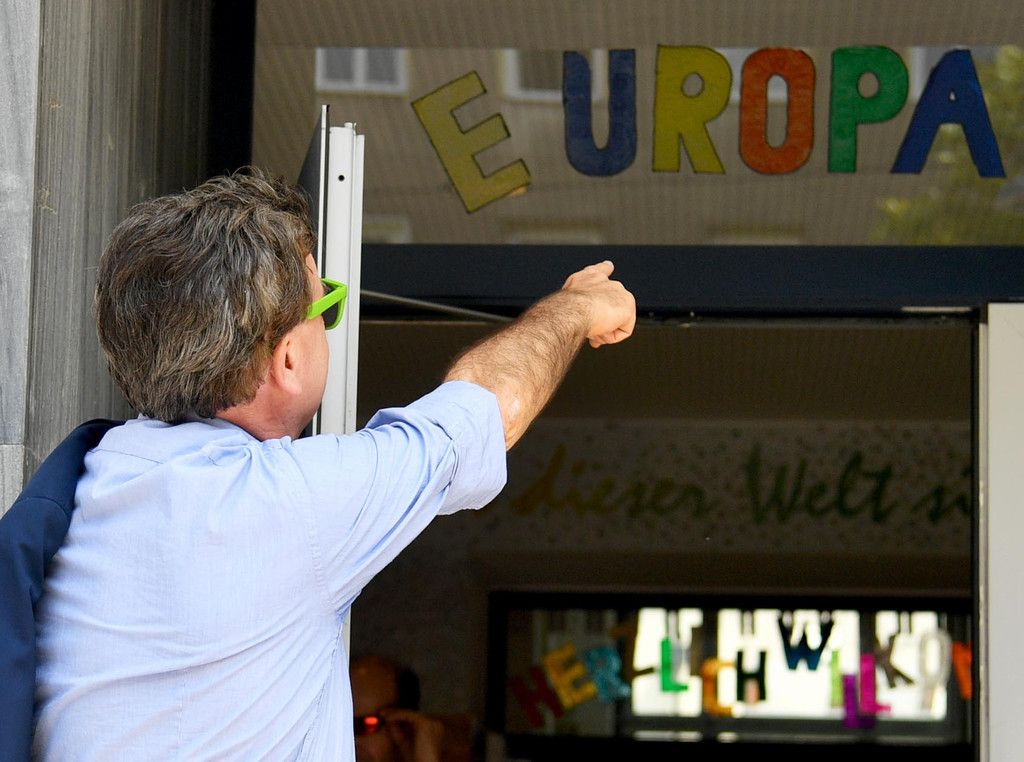 EUROPA
dieser Welt si
HERZLICH WILLKO